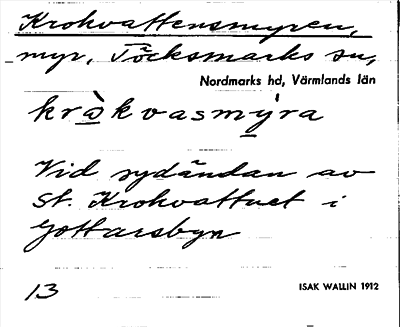 Krokvattensmyren,
myr, Töcksmarks sn,
Nordmarks hd, Värmlands län
kràkvasmýra
Vid sydändan av
St. Krokvattnet i
Gottarsbyn
13
ISAK WALLIN 1912